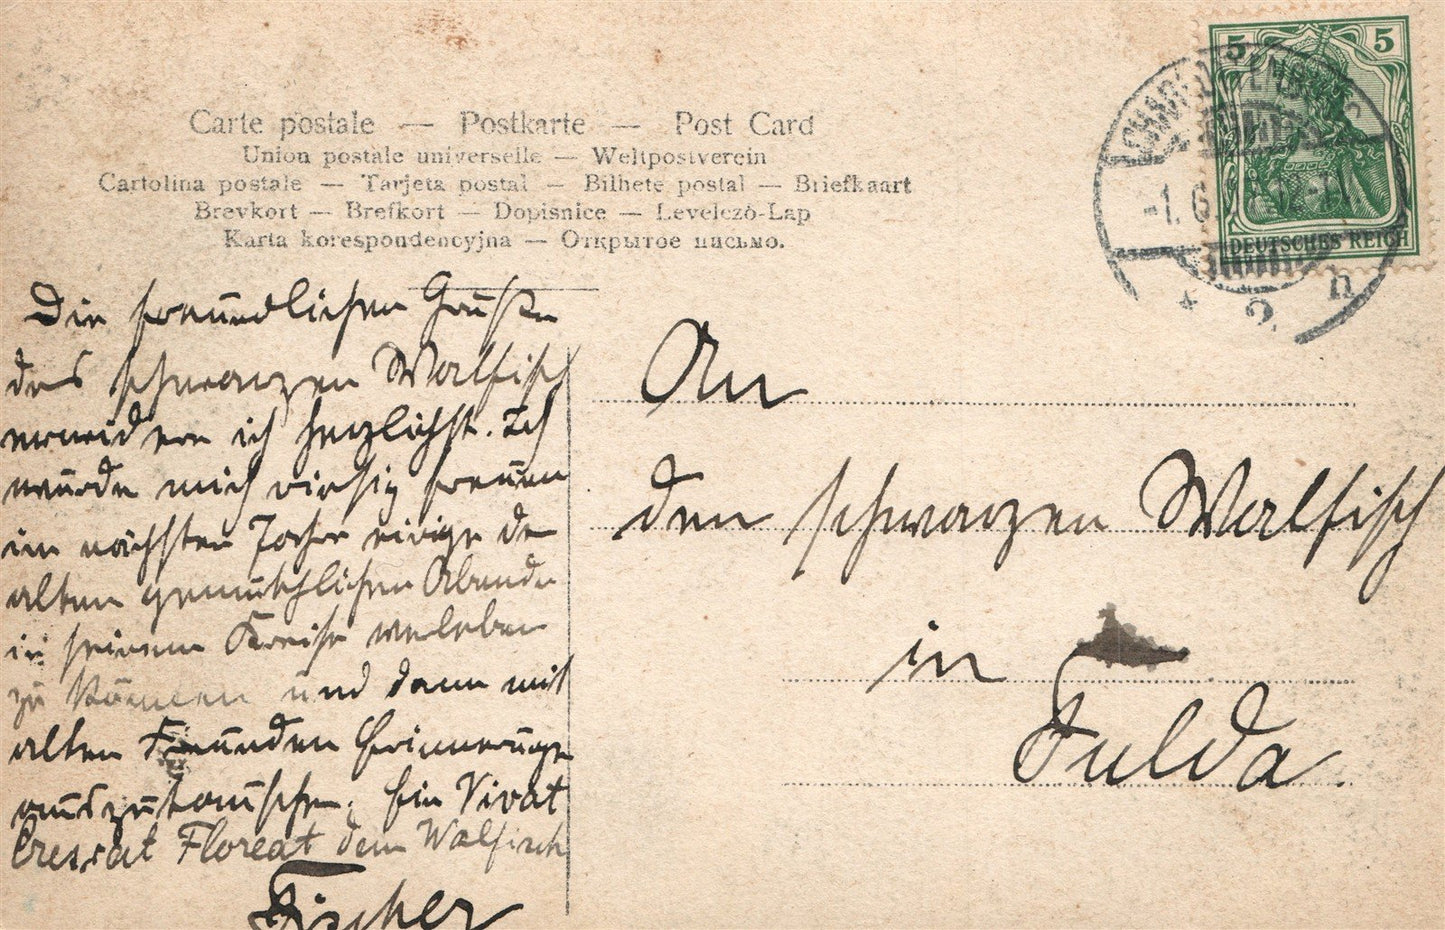 Carte postale — Postkarte — Post Card
Union postale universelle — Weltpostverein
Cartolina postale — Tarjeta postal — Bilhete postal — Briefkaart
Brevkort — Brefkort — Dopisnice — Levelező-Lap
Karta korespondencyjna — Открытое письмо.
5 5
DEUTSCHES REICH
CHARLOTTENBURG
-1. 6.
* 2 n
Die freundlichen Grüße
des schwarzen Walfisch
erwidere ich herzlichst. Ich
würde mich riesig freuen
im nächsten Jahre einige der
alten gemüthlichen Abende
in seinem Kreise verleben
zu können und dann mit
alten Freunden Erinnerungen
auszutauschen. Ein Vivat
Crescat Floreat dem Walfisch
Fischer
An
den schwarzen Walfisch
in
Fulda